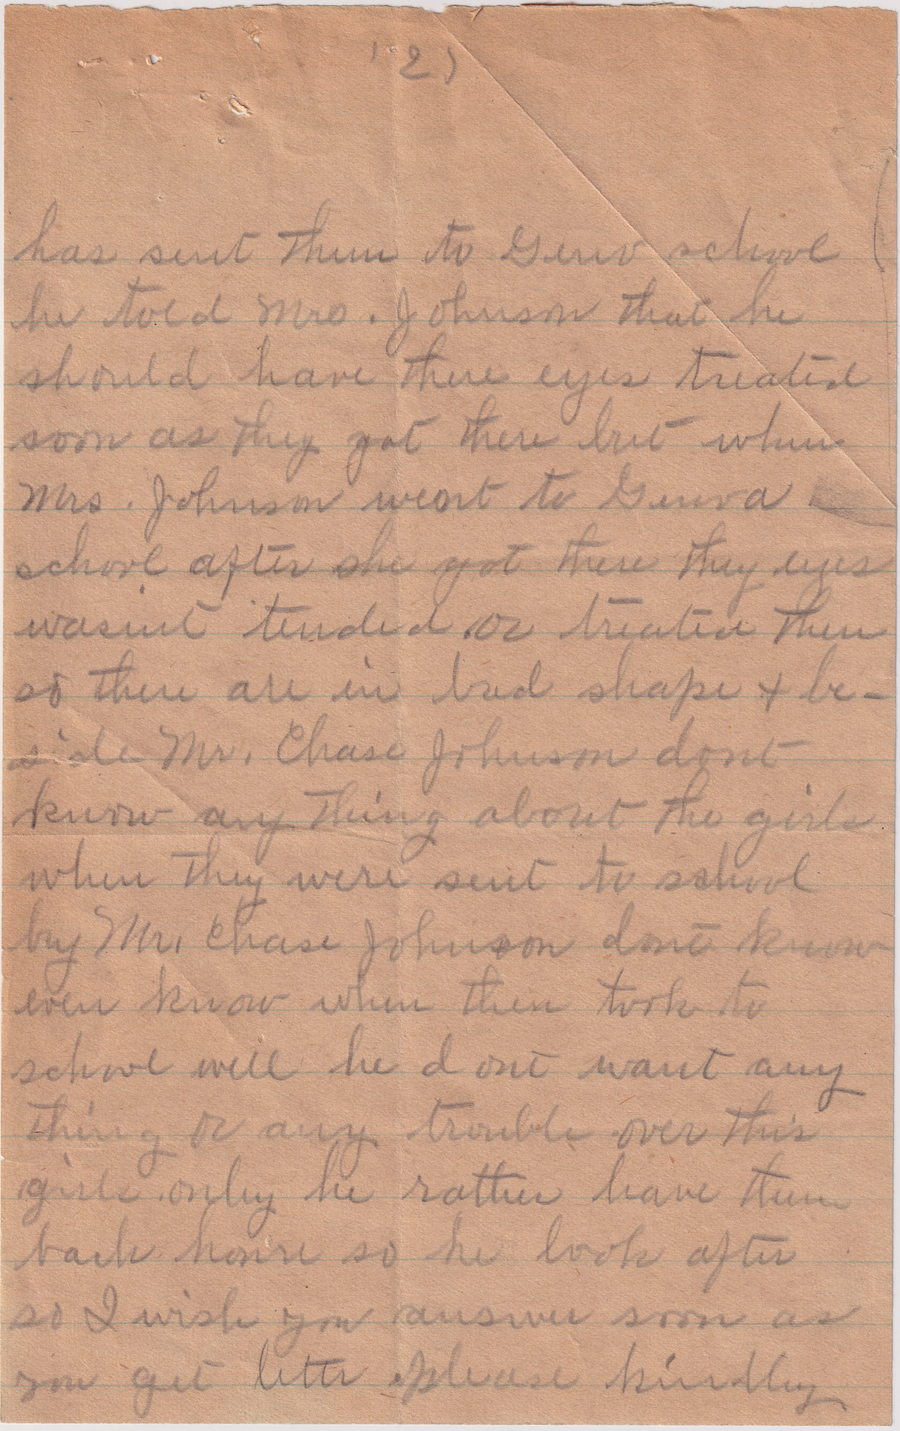 (2)
has sent them to Genv school
he told Mrs. Johnson that he
should have there eyes treated
soon as they got there but when
Mrs. Johnson went to Genva
school after she got there they eyes
wasint tended or treated then
so there are in bad shape + be-
side Mr. Chase Johnson dont
know any thing about the girls
when they were sent to school
by Mr. Chase Johnson dont know
even know when then took to
school well he dont want any
thing or any trouble over this
girls only he rather have them
back home so he look after
so I wish you answer soon as
you get letter please kindley